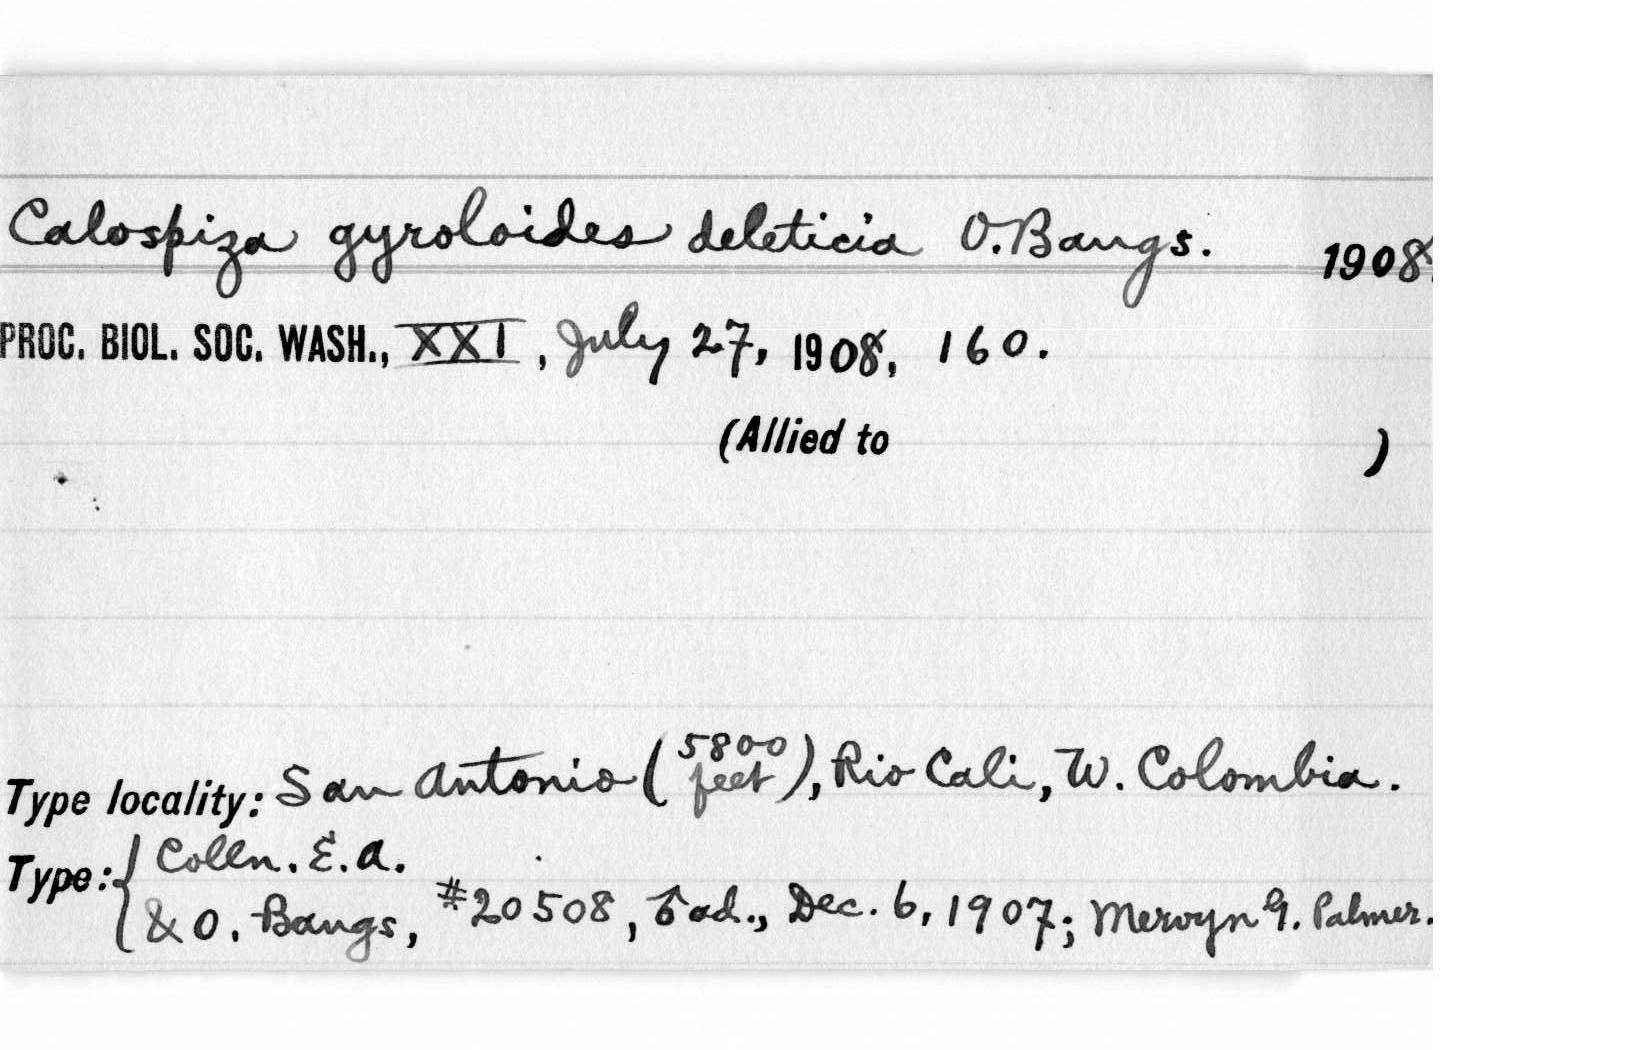 Calospiza gyroloides deleticia O. Bangs. 1908.
PROC. BIOL. SOC. WASH., XXI, July 27, 1908, 160.
(Allied to )
Type locality: San Antonio (5800 feet), Rio Cali, W. Colombia.
Type: { Colln. E. A.
& O. Bangs, #20508, ♂ ad., Dec. 6, 1907; Mervyn G. Palmer.